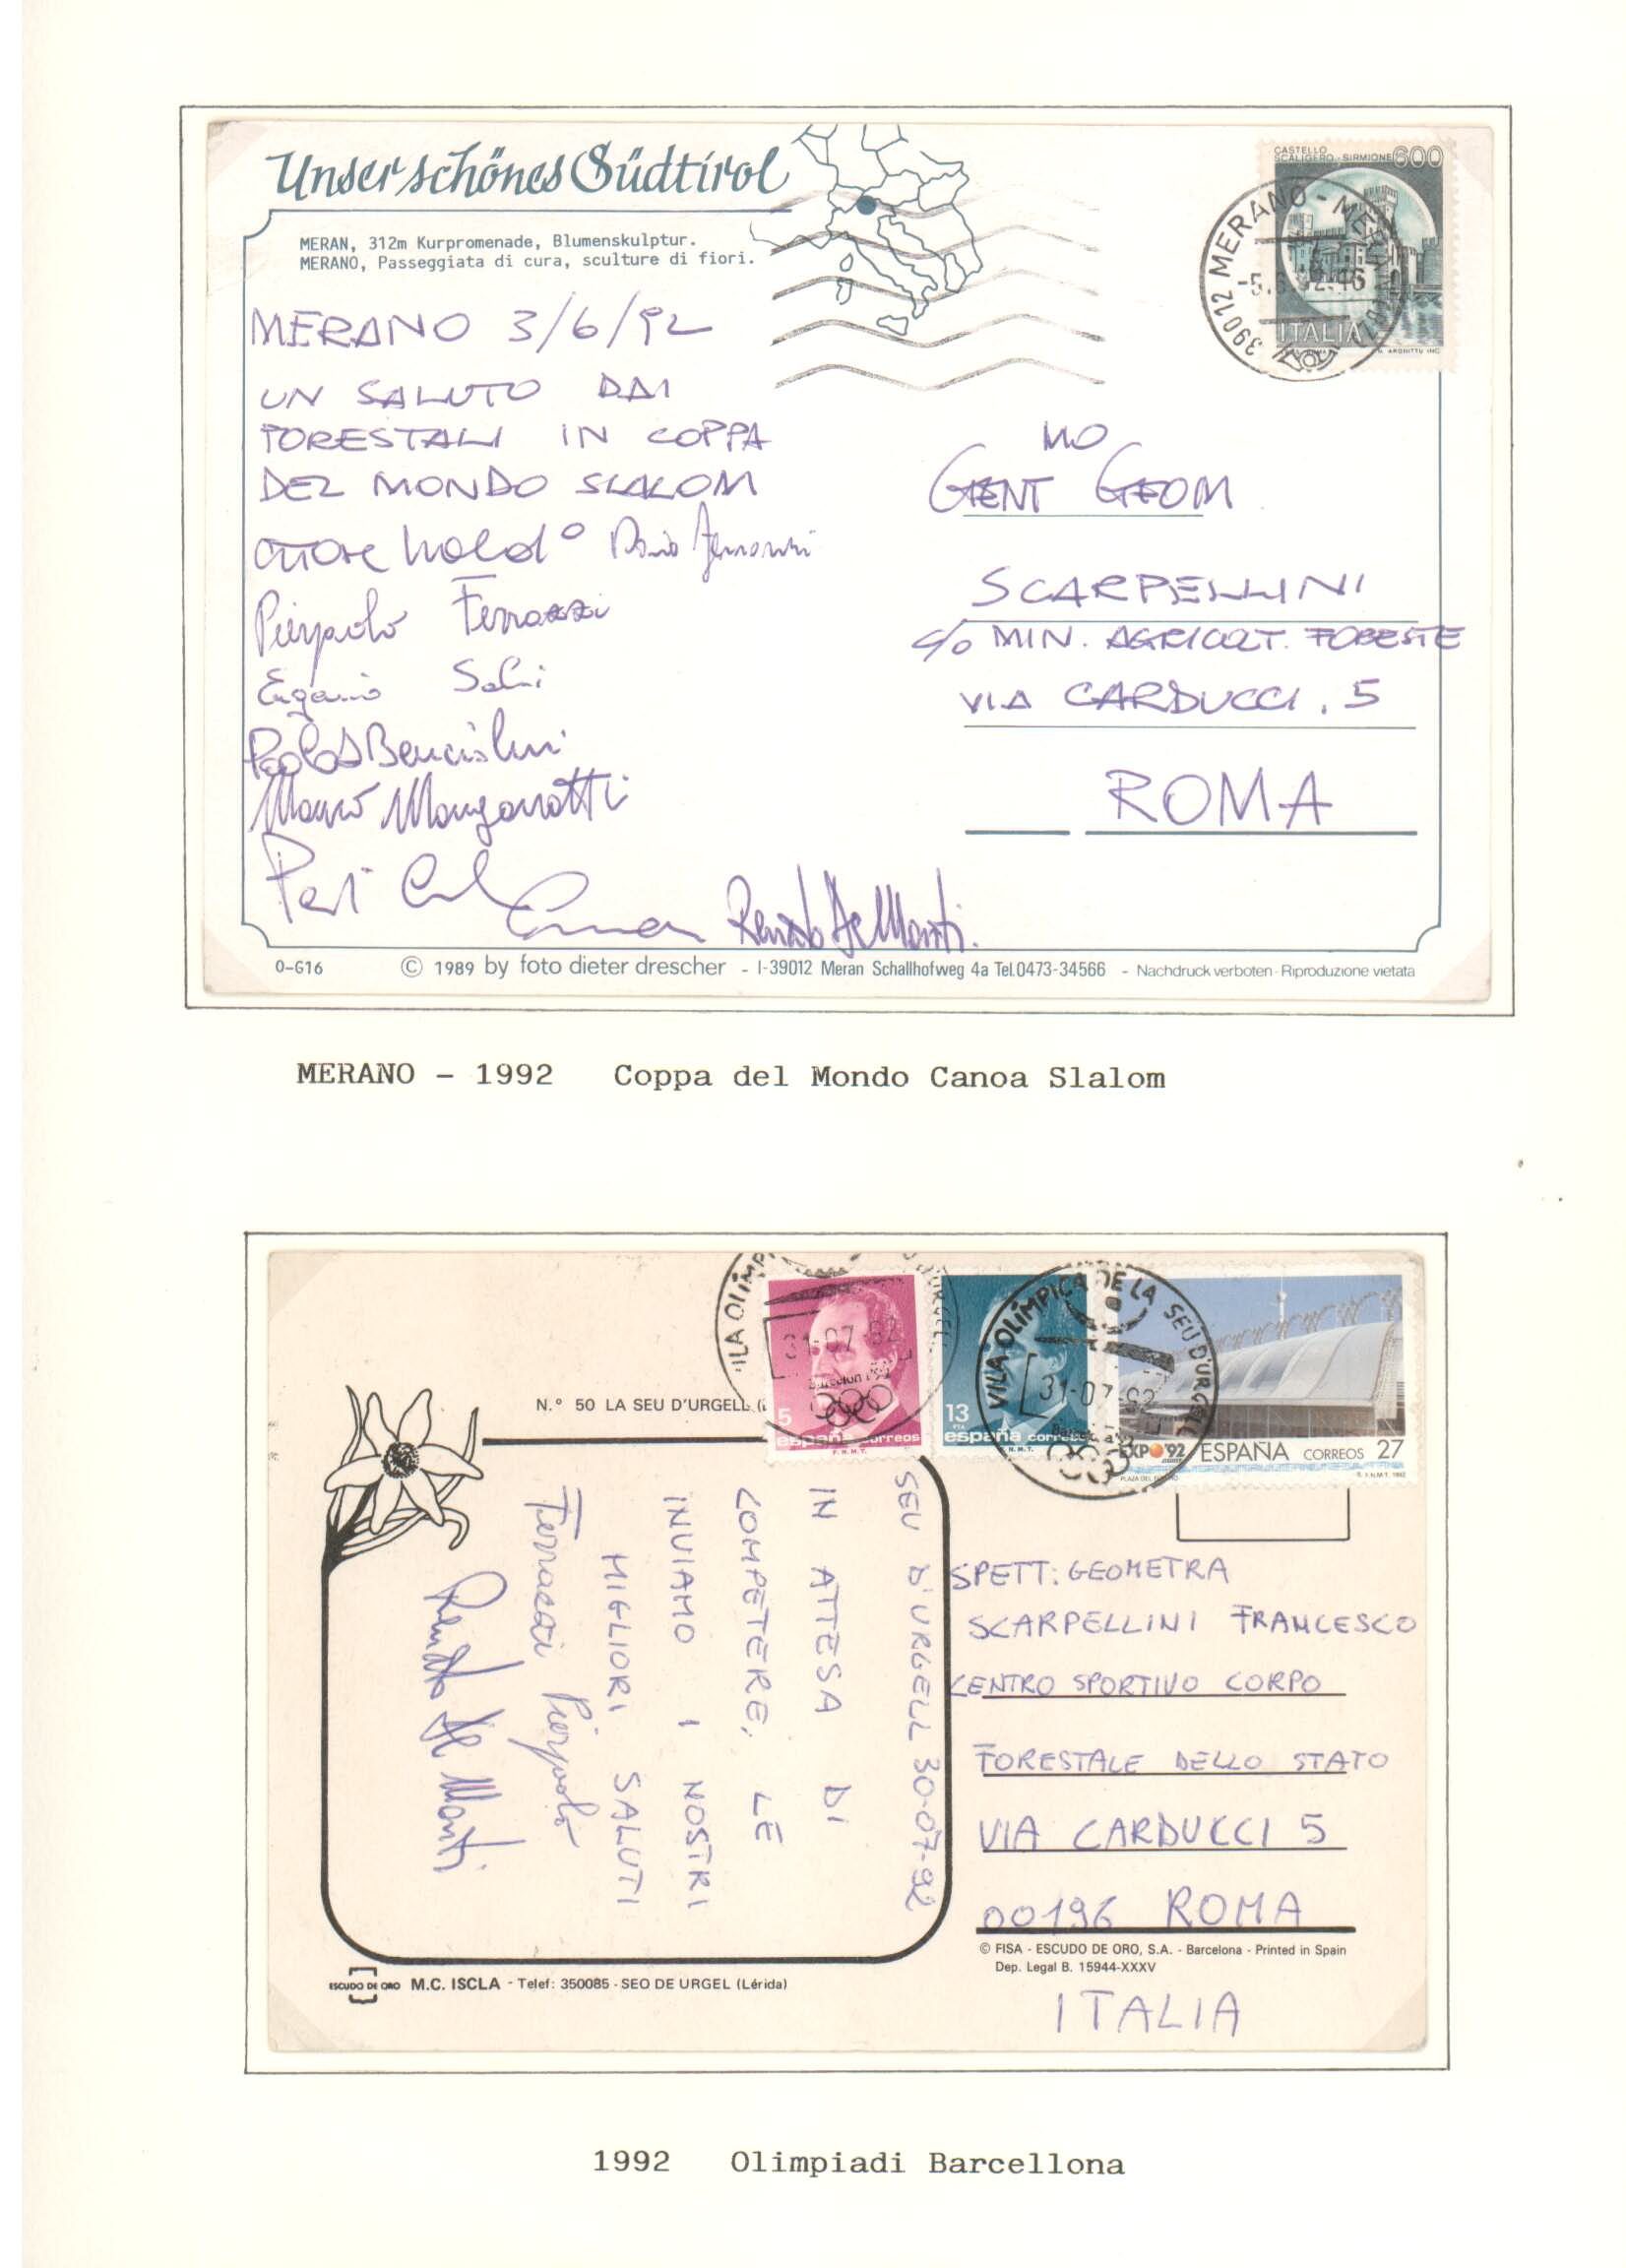 Unser schönes Südtirol
MERAN, 312m Kurpromenade, Blumenskulptur.
MERANO, Passeggiata di cura, sculture di fiori.
CASTELLO
SCALIGERO - SIRMIONE 600
ITALIA
39012 MERANO - MERAN
MERANO 3/6/92
UN SALUTO DAI
FORESTALI IN COPPA
DEL MONDO SLALOM
Pierpaolo Ferrazzi
Eugenio
Paolo
Mauro Manganotti
Renato De Monti.
MO
GENT GEOM
SCARPELLINI
c/o MIN. AGRICOLT. FORESTE
VIA CARDUCCI, 5
ROMA
O-G16 © 1989 by foto dieter drescher - I-39012 Meran Schallhofweg 4a Tel.0473-34566 - Nachdruck verboten - Riproduzione vietata
MERANO - 1992 Coppa del Mondo Canoa Slalom
N.º 50 LA SEU D'URGELL
31-07-92
5
españa correos
F.N.M.T.
VILA OLÍMPICA DE LA SEU D'URGELL
31-07-92
13
españa correos
F.N.M.T.
EXPO'92 ESPAÑA CORREOS 27
SEU D'URGELL 30-07-92
IN ATTESA DI
COMPETERE, LE
INVIAMO I NOSTRI
MIGLIORI SALUTI
Ferrazzi Pierpaolo
Renato De Monti
SPETT: GEOMETRA
SCARPELLINI FRANCESCO
CENTRO SPORTIVO CORPO
FORESTALE DELLO STATO
VIA CARDUCCI 5
00196 ROMA
© FISA - ESCUDO DE ORO, S.A. - Barcelona - Printed in Spain
Dep. Legal B. 15944-XXXV
ITALIA
ESCUDO DE ORO M.C. ISCLA - Telef: 350085 - SEO DE URGEL (Lérida)
1992 Olimpiadi Barcellona